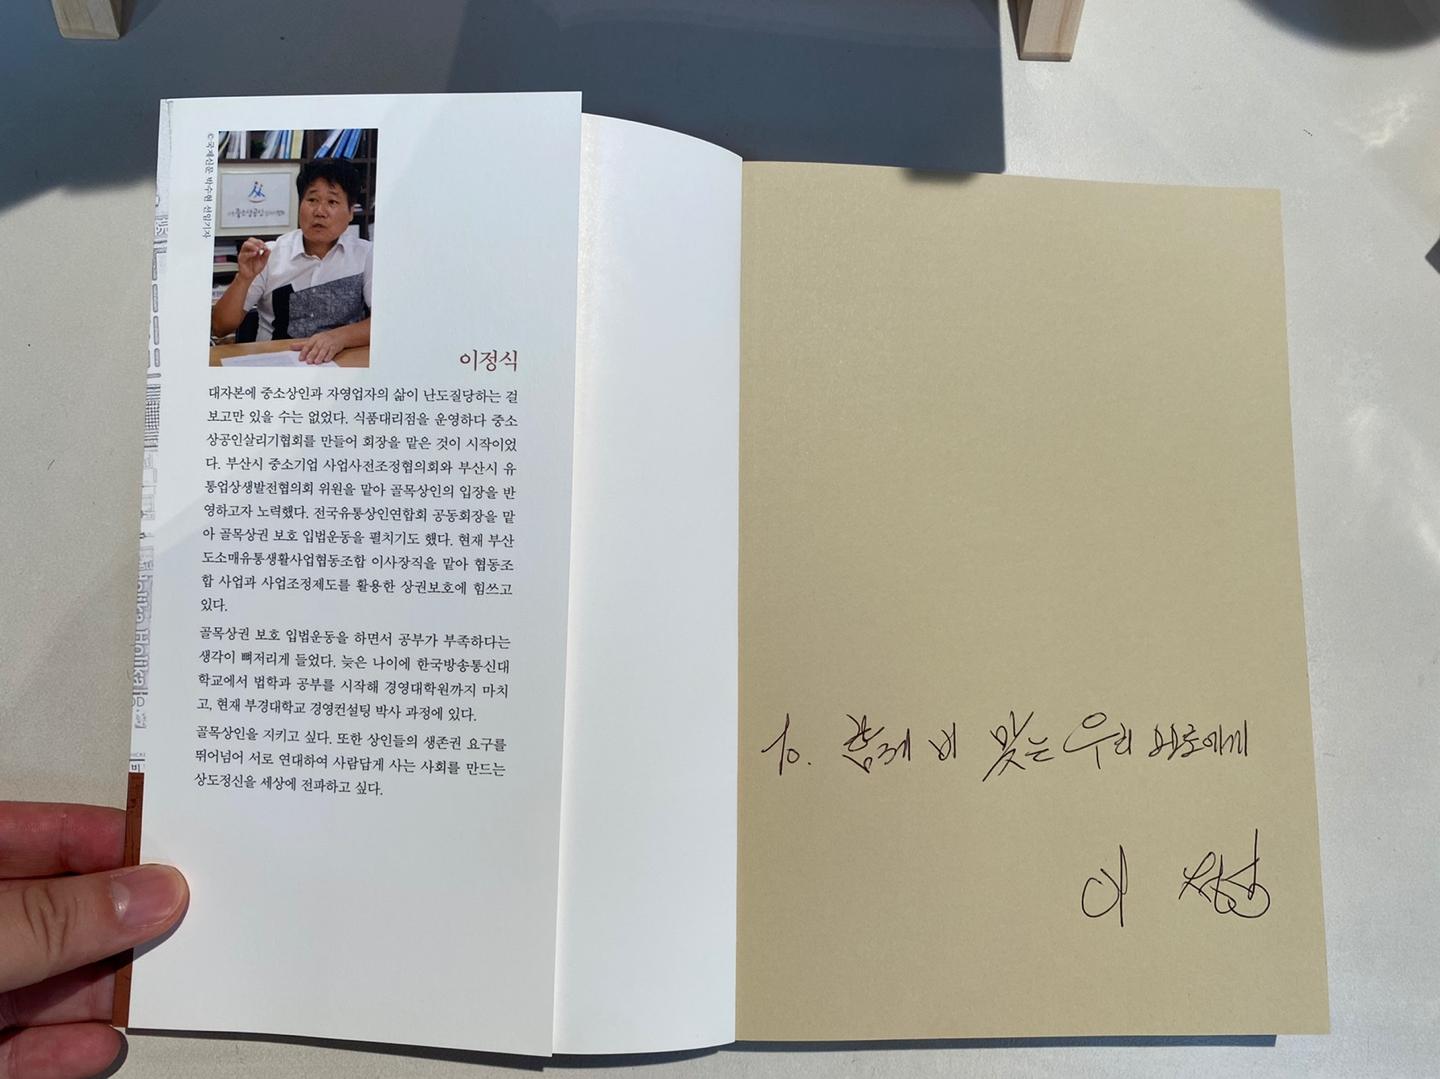 ©국제신문 박수현 선임기자
이정식
대자본에 중소상인과 자영업자의 삶이 난도질당하는 걸
보고만 있을 수는 없었다. 식품대리점을 운영하다 중소
상공인살리기협회를 만들어 회장을 맡은 것이 시작이었
다. 부산시 중소기업 사업사전조정협의회와 부산시 유
통업상생발전협의회 위원을 맡아 골목상인의 입장을 반
영하고자 노력했다. 전국유통상인연합회 공동회장을 맡
아 골목상권 보호 입법운동을 펼치기도 했다. 현재 부산
도소매유통생활사업협동조합 이사장직을 맡아 협동조
합 사업과 사업조정제도를 활용한 상권보호에 힘쓰고
있다.
골목상권 보호 입법운동을 하면서 공부가 부족하다는
생각이 뼈저리게 들었다. 늦은 나이에 한국방송통신대
학교에서 법학과 공부를 시작해 경영대학원까지 마치
고, 현재 부경대학교 경영컨설팅 박사 과정에 있다.
골목상인을 지키고 싶다. 또한 상인들의 생존권 요구를
뛰어넘어 서로 연대하여 사람답게 사는 사회를 만드는
상도정신을 세상에 전파하고 싶다.
to. 함께 비 맞는 우리 서로에게
이 정식